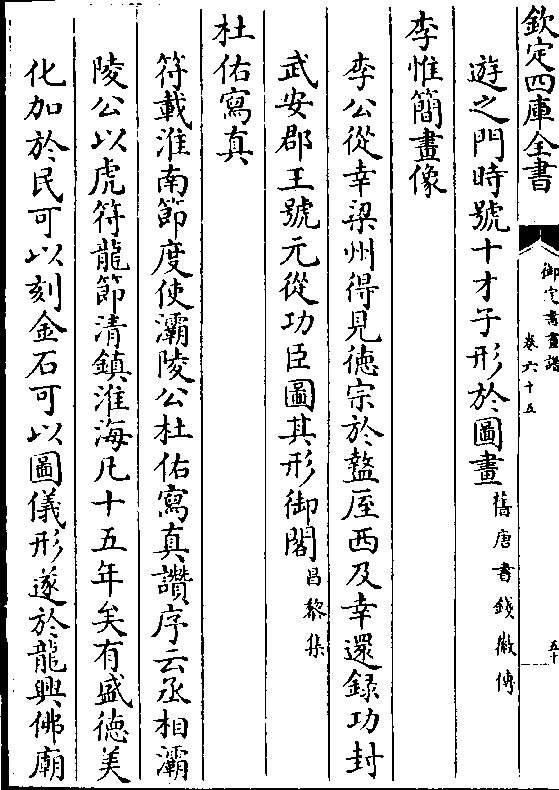 欽定四庫全書
御定書畫譜
卷六十五
五十
遊之門時號十才子形於圖畫舊唐書錢徽傳
李惟簡畫像
李公從幸梁州得見德宗於盩厔西及幸還録功封
武安郡王號元從功臣圖其形御閣昌黎集
杜佑寫真
符載淮南節度使灞陵公杜佑寫真讚序云丞相灞
陵公以虎符龍節清鎮淮海凡十五年矣有盛德美
化加於民可以刻金石可以圖儀形遂於龍興佛廟